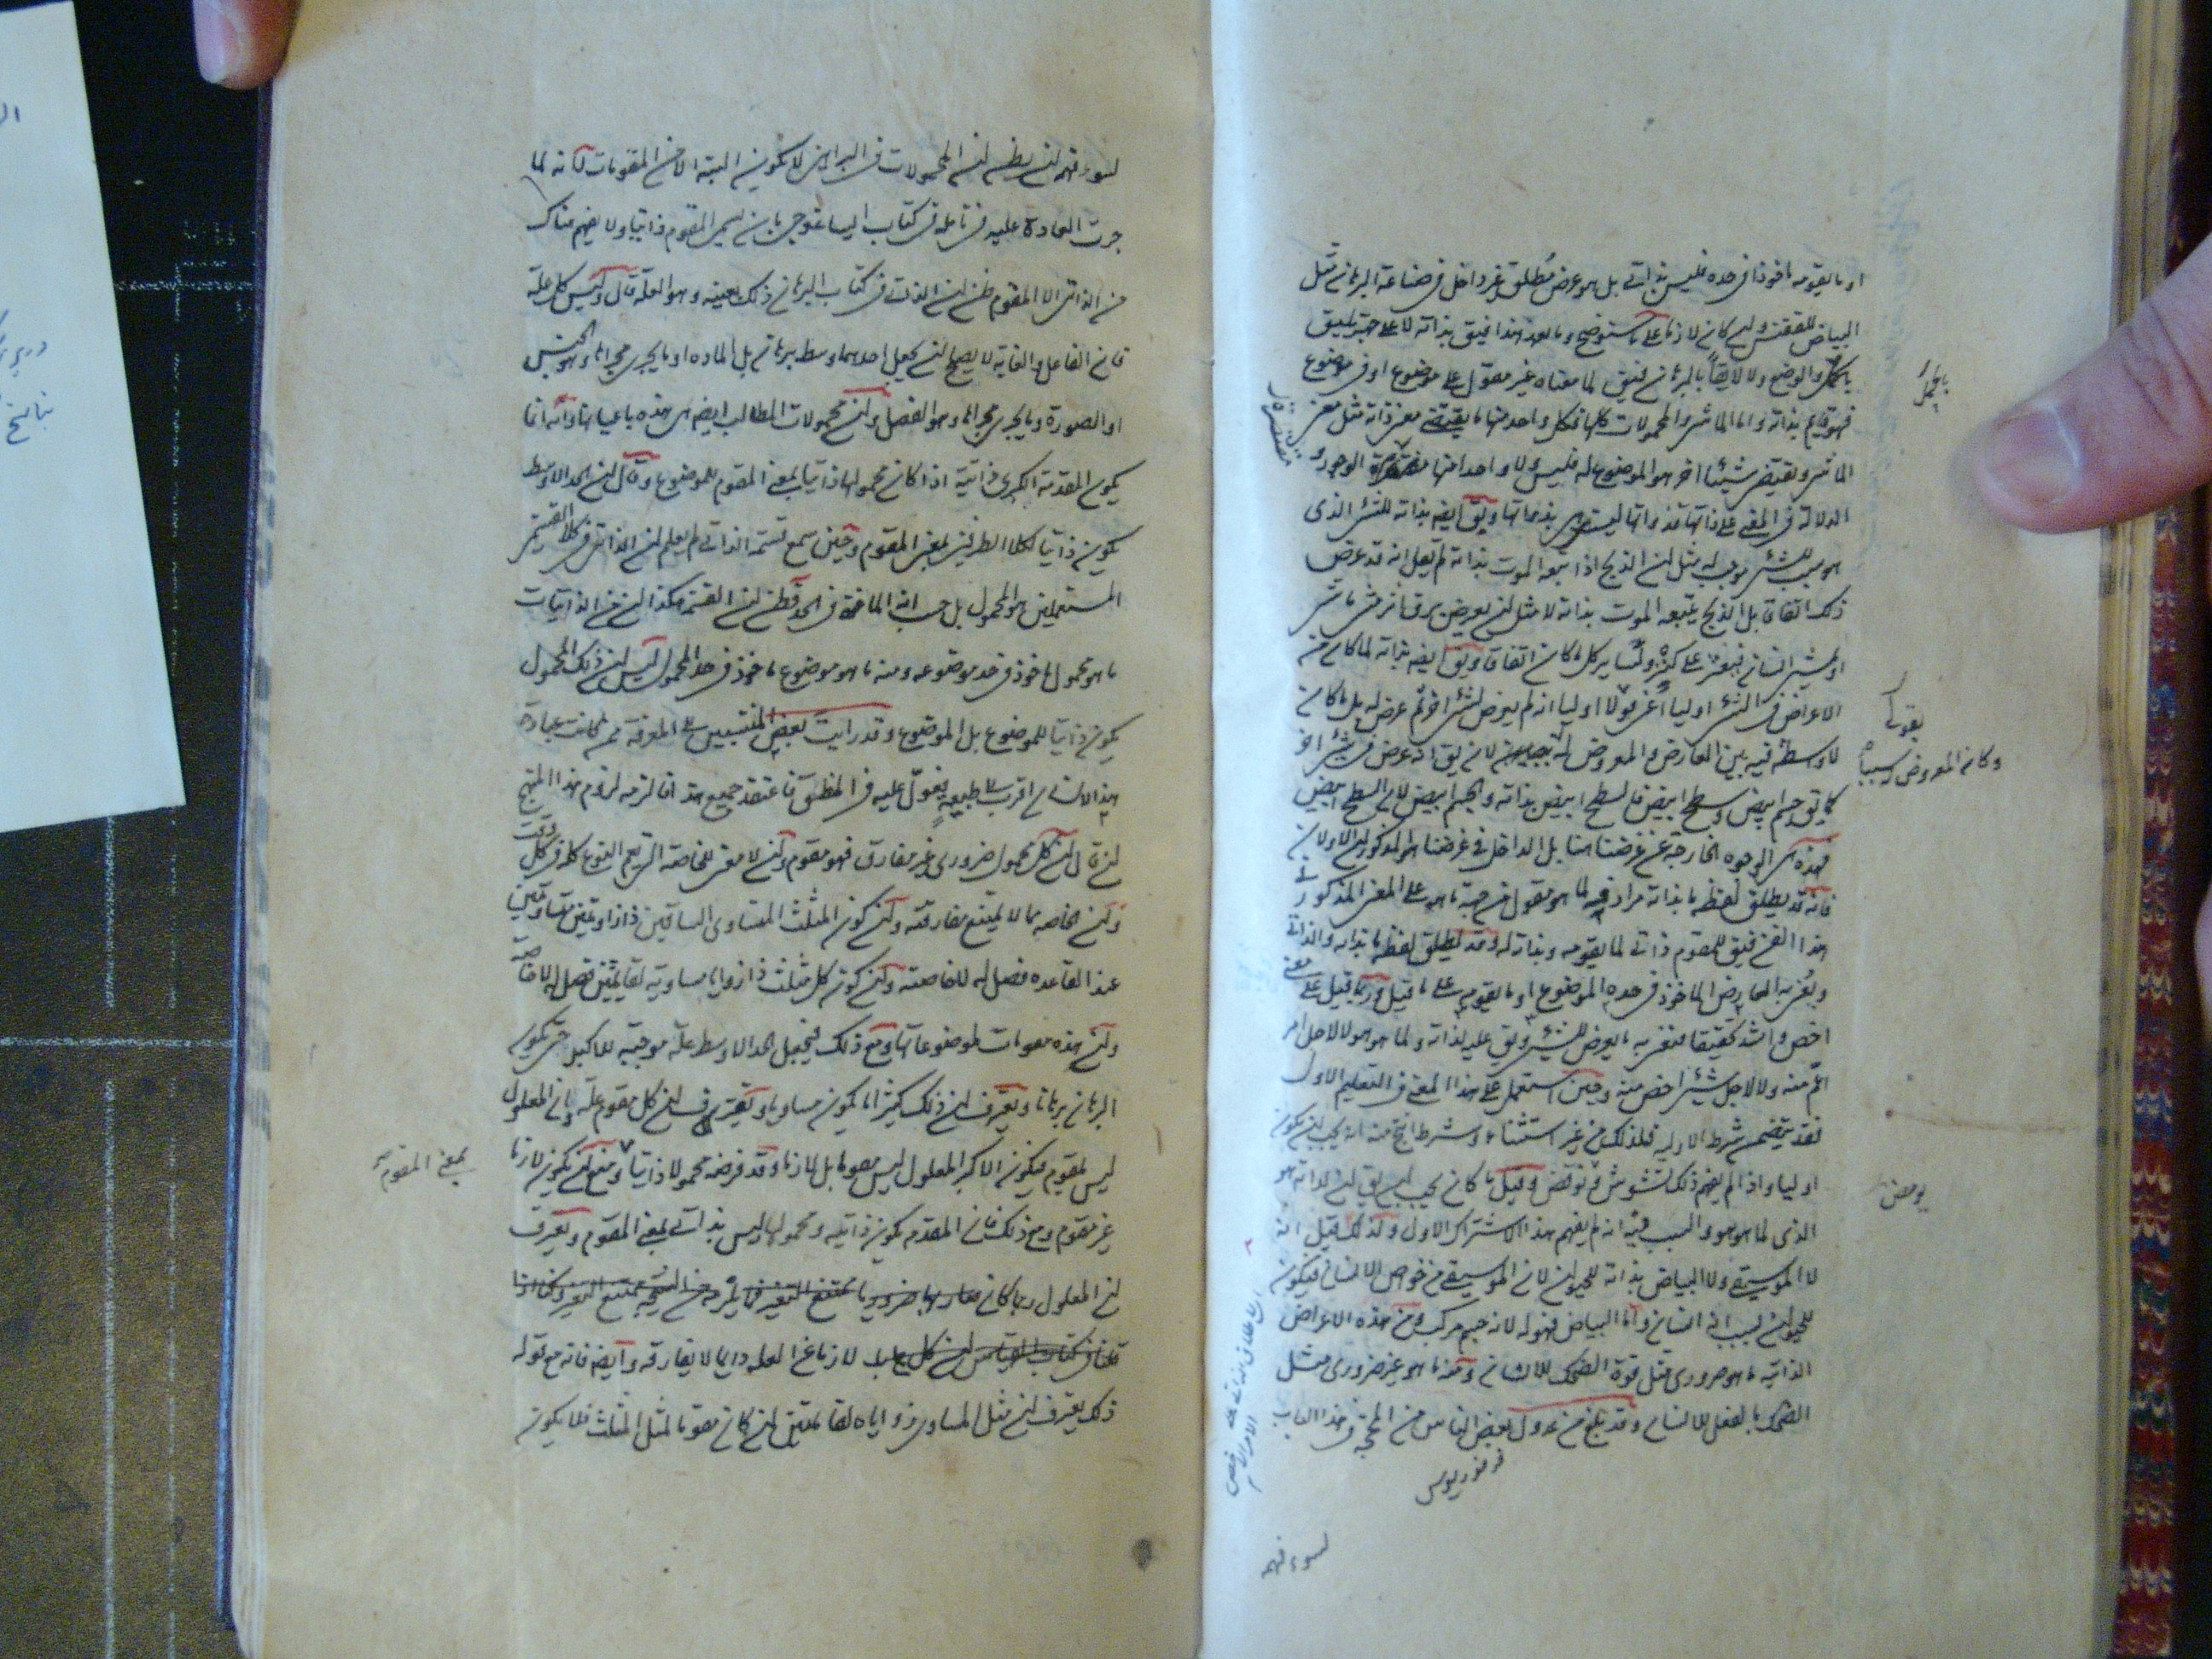 او ما يقومه ماخوذا فى حده فليس بذاتى بل هو عرض مُطلق غير داخل فى صناعة البرهان مثل
البياض للققنس وان كان لازما على ما سنوضح وما بعد هذا فيق بذاته لا على جهة يليق
بالحمل والوضع ولا لايقاً بالبرهان فيق لما معناه غير مقول على موضوع او فى موضوع
فهو قايم بذاته واما الماشى والمحمولات كلها فكل واحد منها ما يقتضى معنى ذاته مثل معنى
الماشى ويقتضى شيئا اخر هو الموضوع له فليس ولا واحد منها مقتصرة الوجود و
الدلالة فى المعنى على ذاتها فذواتها ليست هى بذواتها ويق ايضا بذاته للشئ الذى
هو سبب للشئ موجب له مثل ان الذبح اذا تبعه الموت بذاته لم يقل انه قد عرض
ذلك اتفاقا بل الذبح يتبعه الموت بذاته لا مثل ان يعرض برق اذ مشى ماشى
او يمشى انسان فيعثر على كنز وساير كل ما كان اتفاقا ويق ايضا بذاته لما كان من
الاعراض فى الشئ اوليا اعنى بقولنا اوليا انه لم يعرض لشئ اخر ثم عرض له بل ما كان
لا واسطة فيه بين العارض والمعروض له لان يق انه عرض فى شئ اخر
كما يق جسم ابيض وسطح ابيض فالسطح ابيض بذاته والجسم ابيض لان السطح ابيض
فهذه هى الوجوه الخارجة عن غرضنا هنا بل الداخل فى غرضنا هو المذكوران الاولان
فانه قد يطلق لفظة ما بذاته مرادفه لما هو مقول من جهة ما هو على المعنى المذكور
هذا الفن فيق للمقوم ذاتى لما يقومه وبذاته له وقد يطلق لفظة ما بذاته والذاتى
ويعنى به العارض الماخوذ فى حده الموضوع او ما يقومه على ما قيل وربما قيل على معنى
اخص واشد تحقيقا فعنى به ما يعرض للشئ ويق عليه لذاته ولما هو هو لا لاجل امر
اعم منه ولا لاجل شئ اخص منه وحين استعمل على هذا المعنى فى التعليم الاول
فقد يتضمن شرط الاولية فلذلك من غير استثناء وشرط انتج منه انه يجب ان يكون
اوليا واذ لم يفهم ذلك تشوش ونوقض وقيل ما كان يجب ان يق ان لذاته هو
الذى لما هو هو والسبب فيه انه لم يفهم هذا الاشتراك الاول ولذلك قيل انه
لا الموسيقى ولا البياض بذاته للحيوان لان الموسيقى من خواص الانسان فيكون
للحيوان بسبب انه انسان واما البياض فهو له لانه جسم مركب ومن هذه الاعراض
الذاتية ما هو ضرورى مثل قوة الضحك للانسان ومنه ما هو غير ضرورى مثل
الضحك بالفعل للانسان وقد بلغ من عدول بعض الناس من المحجة فى هذا الباب
فرفوريوس
لسوء فهمه
بالحمل
يقولنا
وكان المعروض له سبباه
نوقض
لسوء فهمه ان يظن ان المحمولات فى البراهين لا يكون البتة الا من المقومات لانه لما
جرت العادة عليه فى تامله فى كتاب ايساغوجى بان يسمى المقوم ذاتيا ولا يفهم هناك
من الذاتى الا المقوم ظن ان الذاتى فى كتاب البرهان ذلك بعينه وهو العلة قال وليس كل علة
فان الفاعل والغاية لا يصلح ان يجعل احدهما وسط برهان بل المادة او ما يجرى مجراها وهو الجنس
او الصورة وما يجرى مجراها وهو الفصل وان محمولات المطالب ايضا هى هذه باعيانها وانه انما
يكون المقدمة الكبرى ذاتية اذا كان محمولها ذاتيا بمعنى المقوم للموضوع وقال ان الحد الاوسط
يكون ذاتيا لكلا الطرفين بمعنى المقوم وحين سمع قسمة الذاتى لم يعلم ان الذاتى فى كلا القسمين
المستعملين هو المحمول بل حسب انه الماخوذ فى الحد فظن ان القسمة هكذا ان من الذاتيات
ما هو محمول ماخوذ فى حد موضوعه ومنه ما هو موضوع ماخوذ فى حد المحمول ليس ان ذلك المحمول
يكون ذاتيا للموضوع بل الموضوع وقد رايت بعض المنتسبين الى المعرفة ممن كانت عبارة
هذا الانسان اقرب الى طبيعه يعول عليه فى المنطق فاعتقد جميع هذا فالزمه لزوم هذا المنهج
ان قال ان كل محمول ضرورى غير مفارق فهو مقوم وان لا معنى للخاصة التى يعم النوع كله فى كل وقت
وان الخاصه مما لا يمتنع مفارقته وان كون المثلث المتساوى الساقين ذا زاويتين متساويتين
عند القاعده فصل له لا خاصة وان كون كل مثلث ذا زوايا مساوية لقايمتين فصل له لا خاصة
وان هذه مقومات لموضوعاتها ومع ذلك فيجعل الحد الاوسط علة موجبة للاكبر حتى يكون
البرهان برهانا ويعترف ان ذلك كثيرا ما يكون مساويا ويعترف ان كل مقوم علة وان المعلول
ليس بمقوم فيكون الاكبر المعلول ليس مقوما بل لازما وقد فرضه محمولا ذاتيا ومنع ان يكون لازما
غير مقوم ومع ذلك فان المقدمة يكون ذاتية ومحمولها ليس بذاتى بمعنى المقوم ويعترف
ان المعلول ربما كان
لازما عن العلة دايما لا يفارقه وايضا فانه مع قوله
ذلك يعترف ان مثل المساوى زواياه لقايمتين ان كان مقوما لمثل المثلث فلا يكون
بمعنى المقوم